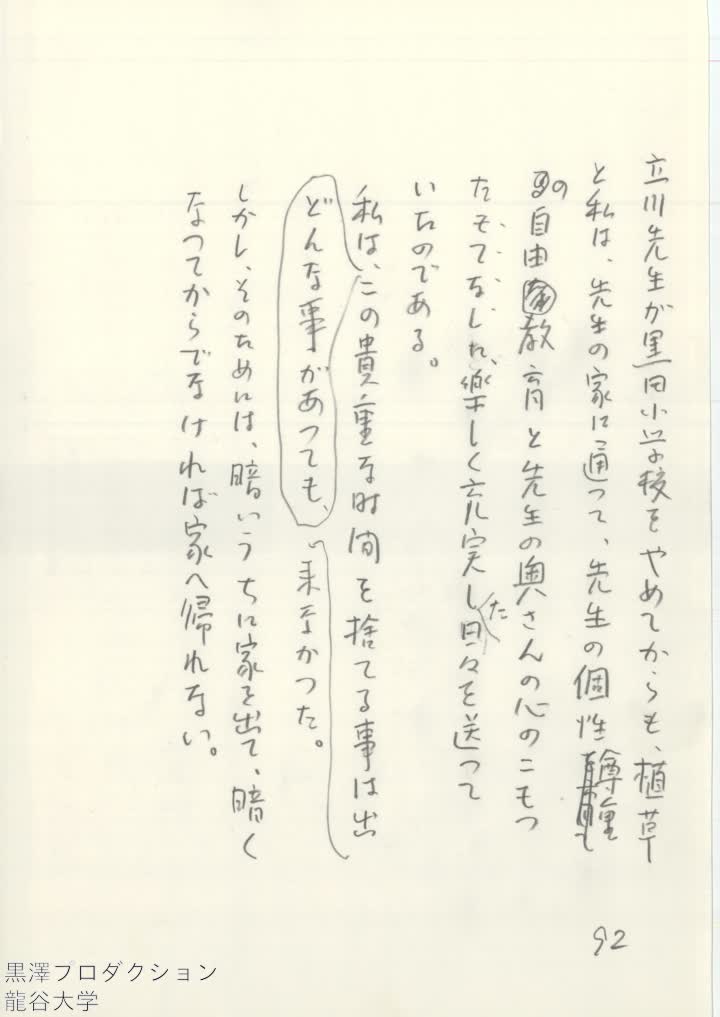 立川先生が黒田小学校をやめてからも、植草
と私は、先生の家に通つて、先生の個性尊重
の自由教育と先生の奥さんの心のこもつ
たもてなしに、楽しく充実した日々を送つて
いたのである。
私は、この貴重な時間を捨てる事は出
どんな事があつても、
来なかつた。
しかし、そのためには、暗いうちに家を出て、暗く
なつてからでなければ家へ帰れない。
92
黒澤プロダクション
龍谷大学